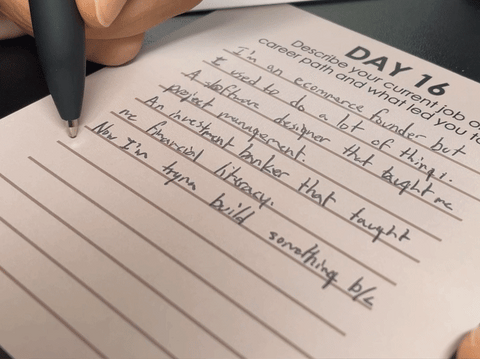 DAY 16
Describe your current job o
career path and what led you to
I'm an ecommerce founder but
I used to do a lot of things.
A software designer that taught me
project management.
An investment banker that taught
me financial literacy.
Now I'm tryna build something b/c